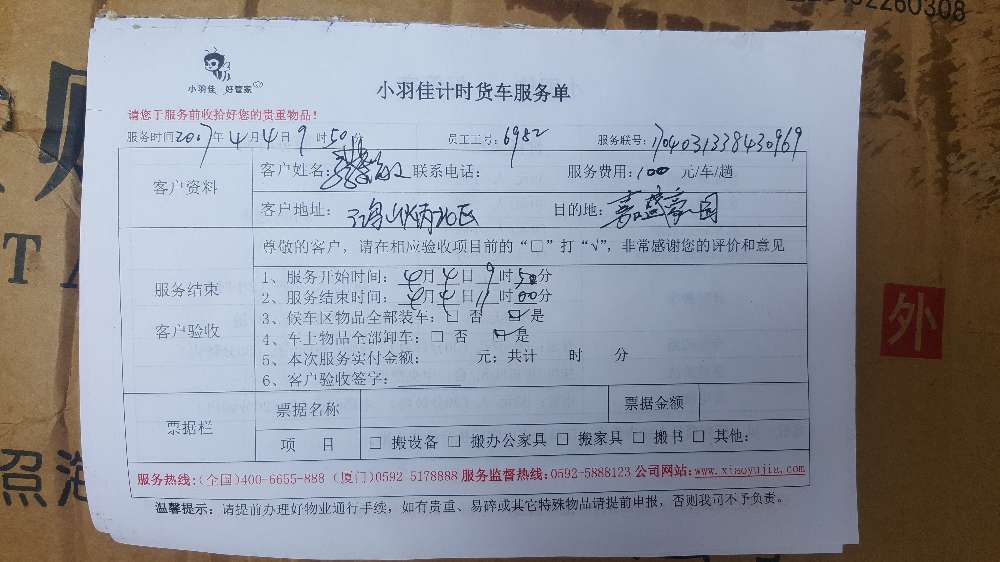 2260308
小羽佳 好管家
小羽佳计时货车服务单
请您于服务前收拾好您的贵重物品!
服务时间2017年4月4日9时50分 员工工号:6982 服务联号:1704031338430969
客户资料
客户姓名: 联系电话: 服务费用:100 元/车/趟
客户地址: 目的地:嘉盛豪园
尊敬的客户,请在相应验收项目前的“□”打“√”,非常感谢您的评价和意见
服务结束
客户验收
1、服务开始时间:4月4日9时50分
2、服务结束时间:4月4日11时00分
3、候车区物品全部装车:□ 否 ☑ 是
4、车上物品全部卸车:□ 否 ☑ 是
5、本次服务实付金额: 元;共计 时 分
6、客户验收签字:
票据栏
票据名称 票据金额
项 目 □ 搬设备 □ 搬办公家具 □ 搬家具 □ 搬书 □ 其他:
服务热线:(全国)400-6655-888 (厦门)0592 5178888 服务监督热线:0592-5888123 公司网站:www.xiaoyujia.com
温馨提示:请提前办理好物业通行手续,如有贵重、易碎或其它特殊物品请提前申报,否则我司不予负责。
外
照